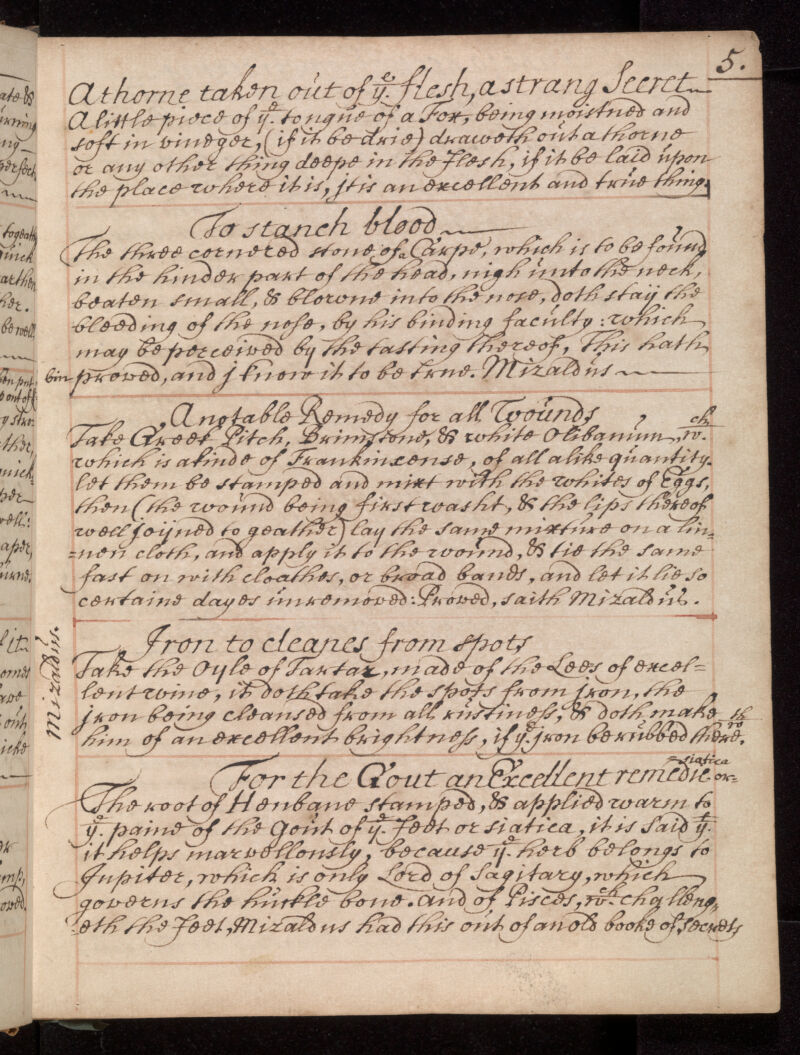 5.
A thorne taken out of yͤ. flesh, a strang Secret
A little piece of yͤ. tongue of a Fox, being moistned and
soft in vineger, (if it be drie) draweth out a thorne
or any other thing deepe in the Flesh, if it be laid upon
the place where it is, jt is an excellent and true thing.
To stanch blood
The three cornered stone of a Carpe, which is to be found
in the hinder part of the head, nigh unto the neck,
beaten small, & blowne into the nose, doth stay the
bleeding of the nose, by his binding faculty: which
may be perceived by the tasting thereof, This hath
bin proved, and j know it to be true. Mizaldus
A notable Remedy for all Wounds
Take Greek Pitch, Brimstone, & white Olibanum, wᶜʰ.
which is a kinde of Frankinsense, of all alike quantity.
let them be stamped and mixt with the whites of Eggs,
then (the wound being first washt, & the lips thereof
well joyned to geather) lay the same mixture on a lin-
=nen cloth, and apply it to the wound, & tie the same
fast on with cloathes, or broad bands, and let it lie so
certaine dayes unremoved: Proved, saith Mizaldus.
Mizaldus.
Jron to cleanes from spots
Take the Oyle of Tartar, made of the Lees of excel=
lent wine, it doth take the spots from jron, the
jron being cleansed from all rustiness, & doth make
him of an excellent brightness, if yͤ. jron be rubbed there wᵗʰ.
For the Gout an Excellent remedie or siatica
The root of Henbane stamped, & applied warm to
yͤ. paine of the gout of yͤ. Feet or siatica, it is said yᵗ.
it helps marvellously, because yͤ. herb belongs to
Jupiter, which is only Lord of Sagitary, which
governs the huckle bone. and of Pisces, wᶜʰ. challeng-
=eth the Feet, Mizaldus had this out of an old booke of secrets